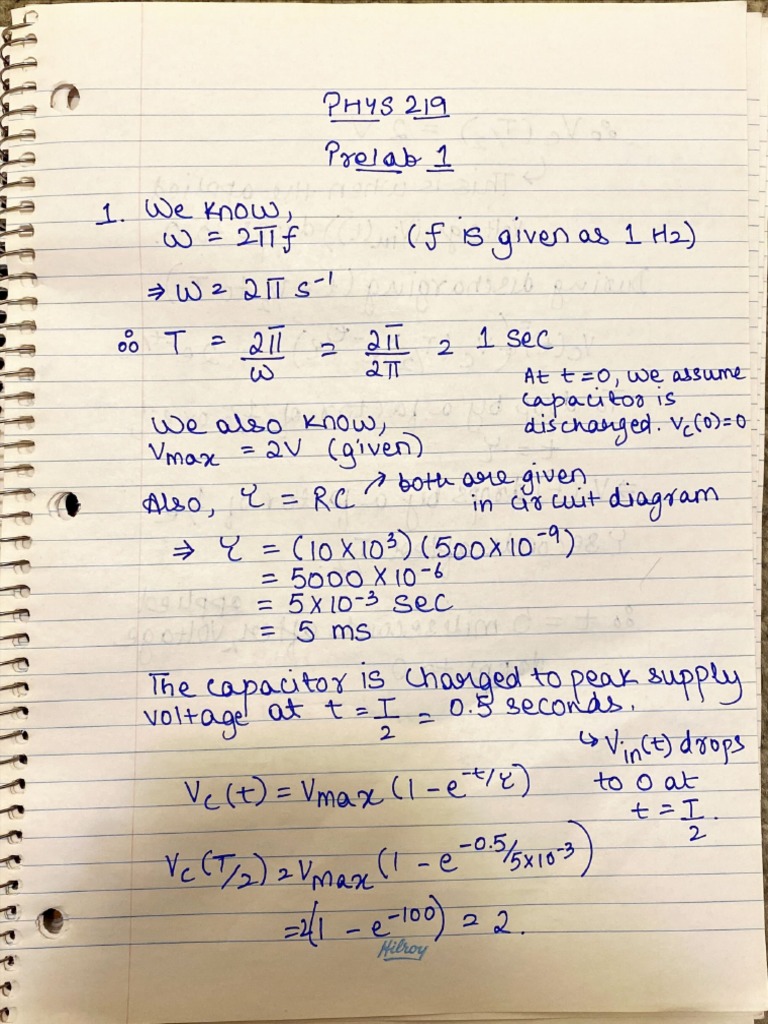 PHYS 219
Prelab 1
1. We know,
ω = 2πf (f is given as 1 Hz)
⇒ ω = 2π s⁻¹
∴ T = 2π/ω = 2π/2π = 1 sec
At t=0, we assume
capacitor is
discharged. Vc(0)=0
We also know,
Vmax = 2V (given)
Also, τ = RC ↗ both are given
in circuit diagram
⇒ τ = (10×10³)(500×10⁻⁹)
= 5000×10⁻⁶
= 5×10⁻³ sec
= 5 ms
The capacitor is charged to peak supply
voltage at t = T/2 = 0.5 seconds.
↳ Vin(t) drops
to 0 at
t = T/2.
Vc(t) = Vmax (1 - e^(-t/τ))
Vc(T/2) = Vmax (1 - e^(-0.5/5×10⁻³))
= 2(1 - e⁻¹⁰⁰) = 2.
Hilroy